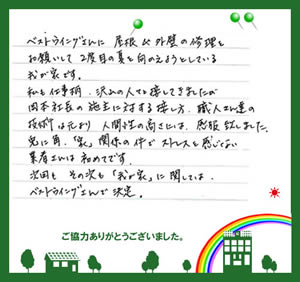 ベストウイングさんに 屋根 & 外壁の修理を
お願いして 2度目の夏を向かえようとしている
我が家です。
私も仕事柄、沢山の人々と接してきましたが
岡本社長の施主に対する接し方、職人さん達の
技術は元より 人間性の高さには、感服致しました。
兎に角、「家」関係の件でストレスを感じない
業者さんは初めてです。
次回も その次も「我が家」に関しては、
ベストウイングさんで決定。
ご協力ありがとうございました。